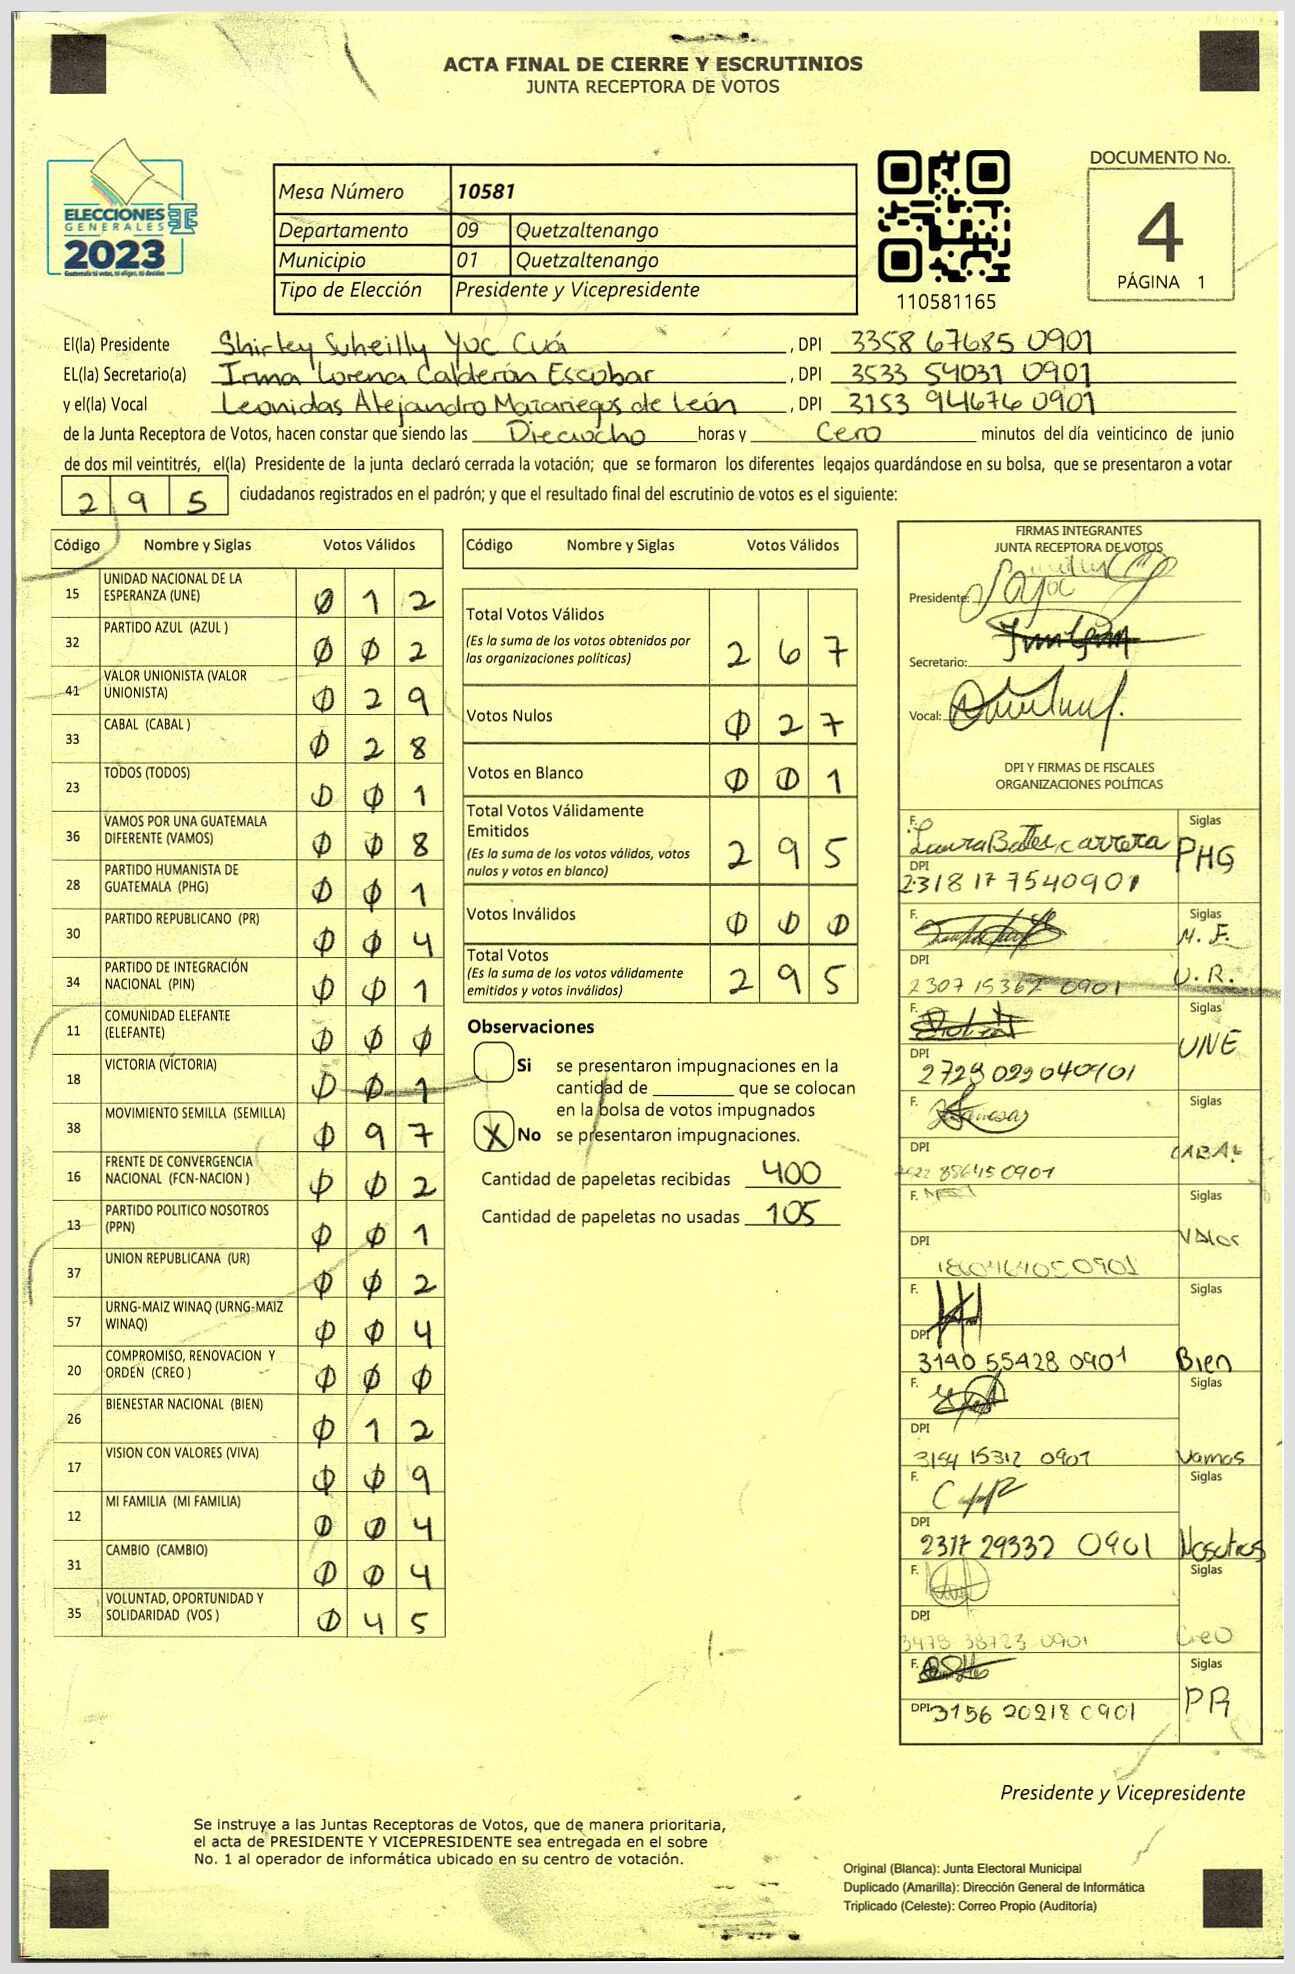 ACTA FINAL DE CIERRE Y ESCRUTINIOS
JUNTA RECEPTORA DE VOTOS
ELECCIONES
GENERALES
2023
Guatemala tú votas, tú eliges, tú decides
Mesa Número 10581
Departamento 09 Quetzaltenango
Municipio 01 Quetzaltenango
Tipo de Elección Presidente y Vicepresidente
110581165
DOCUMENTO No.
4
PÁGINA 1
El(la) Presidente Shirley Suheilly Yoc Cuá , DPI 3358 67685 0901
EL(la) Secretario(a) Irma Lorena Calderón Escobar , DPI 3533 54031 0901
y el(la) Vocal Leonidas Alejandro Mazariegos de León , DPI 3153 94676 0901
de la Junta Receptora de Votos, hacen constar que siendo las Dieciocho horas y Cero minutos del día veinticinco de junio
de dos mil veintitrés, el(la) Presidente de la junta declaró cerrada la votación; que se formaron los diferentes legajos guardándose en su bolsa, que se presentaron a votar
295 ciudadanos registrados en el padrón; y que el resultado final del escrutinio de votos es el siguiente:
Código Nombre y Siglas Votos Válidos
15 UNIDAD NACIONAL DE LA ESPERANZA (UNE) 0 1 2
32 PARTIDO AZUL (AZUL ) 0 0 2
41 VALOR UNIONISTA (VALOR UNIONISTA) 0 2 9
33 CABAL (CABAL ) 0 2 8
23 TODOS (TODOS) 0 0 1
36 VAMOS POR UNA GUATEMALA DIFERENTE (VAMOS) 0 0 8
28 PARTIDO HUMANISTA DE GUATEMALA (PHG) 0 0 1
30 PARTIDO REPUBLICANO (PR) 0 0 4
34 PARTIDO DE INTEGRACIÓN NACIONAL (PIN) 0 0 1
11 COMUNIDAD ELEFANTE (ELEFANTE) 0 0 0
18 VICTORIA (VICTORIA) 0 0 1
38 MOVIMIENTO SEMILLA (SEMILLA) 0 9 7
16 FRENTE DE CONVERGENCIA NACIONAL (FCN-NACION ) 0 0 2
13 PARTIDO POLITICO NOSOTROS (PPN) 0 0 1
37 UNION REPUBLICANA (UR) 0 0 2
57 URNG-MAIZ WINAQ (URNG-MAIZ WINAQ) 0 0 4
20 COMPROMISO, RENOVACION Y ORDEN (CREO ) 0 0 0
26 BIENESTAR NACIONAL (BIEN) 0 1 2
17 VISION CON VALORES (VIVA) 0 0 9
12 MI FAMILIA (MI FAMILIA) 0 0 4
31 CAMBIO (CAMBIO) 0 0 4
35 VOLUNTAD, OPORTUNIDAD Y SOLIDARIDAD (VOS ) 0 4 5
Código Nombre y Siglas Votos Válidos
Total Votos Válidos
(Es la suma de los votos obtenidos por
las organizaciones políticas) 2 6 7
Votos Nulos 0 2 7
Votos en Blanco 0 0 1
Total Votos Válidamente
Emitidos
(Es la suma de los votos válidos, votos
nulos y votos en blanco) 2 9 5
Votos Inválidos 0 0 0
Total Votos
(Es la suma de los votos válidamente
emitidos y votos inválidos) 2 9 5
Observaciones
Si se presentaron impugnaciones en la
cantidad de ________ que se colocan
en la bolsa de votos impugnados
X No se presentaron impugnaciones.
Cantidad de papeletas recibidas 400
Cantidad de papeletas no usadas 105
FIRMAS INTEGRANTES
JUNTA RECEPTORA DE VOTOS
Presidente:
Secretario:
Vocal:
DPI Y FIRMAS DE FISCALES
ORGANIZACIONES POLÍTICAS
F. Laura Carrera Siglas
DPI PHG
2318 17754 0901
F. Siglas
M.F.
DPI U.R.
2307 15362 0901
F. Siglas
DPI UNE
2729 02204 0901
F. Siglas
DPI CABAL
85645 0901
F. Siglas
DPI Valor
0901
F. Siglas
DPI
3140 55428 0901 Bien
F. Siglas
DPI
3154 15312 0901 Vamos
F. Siglas
DPI
2317 29332 0901 Nosotros
F. Siglas
DPI
3475 38723 0901 Creo
F. Siglas
PR
DPI 3156 20218 0901
Presidente y Vicepresidente
Se instruye a las Juntas Receptoras de Votos, que de manera prioritaria,
el acta de PRESIDENTE Y VICEPRESIDENTE sea entregada en el sobre
No. 1 al operador de informática ubicado en su centro de votación.
Original (Blanca): Junta Electoral Municipal
Duplicado (Amarilla): Dirección General de Informática
Triplicado (Celeste): Correo Propio (Auditoría)